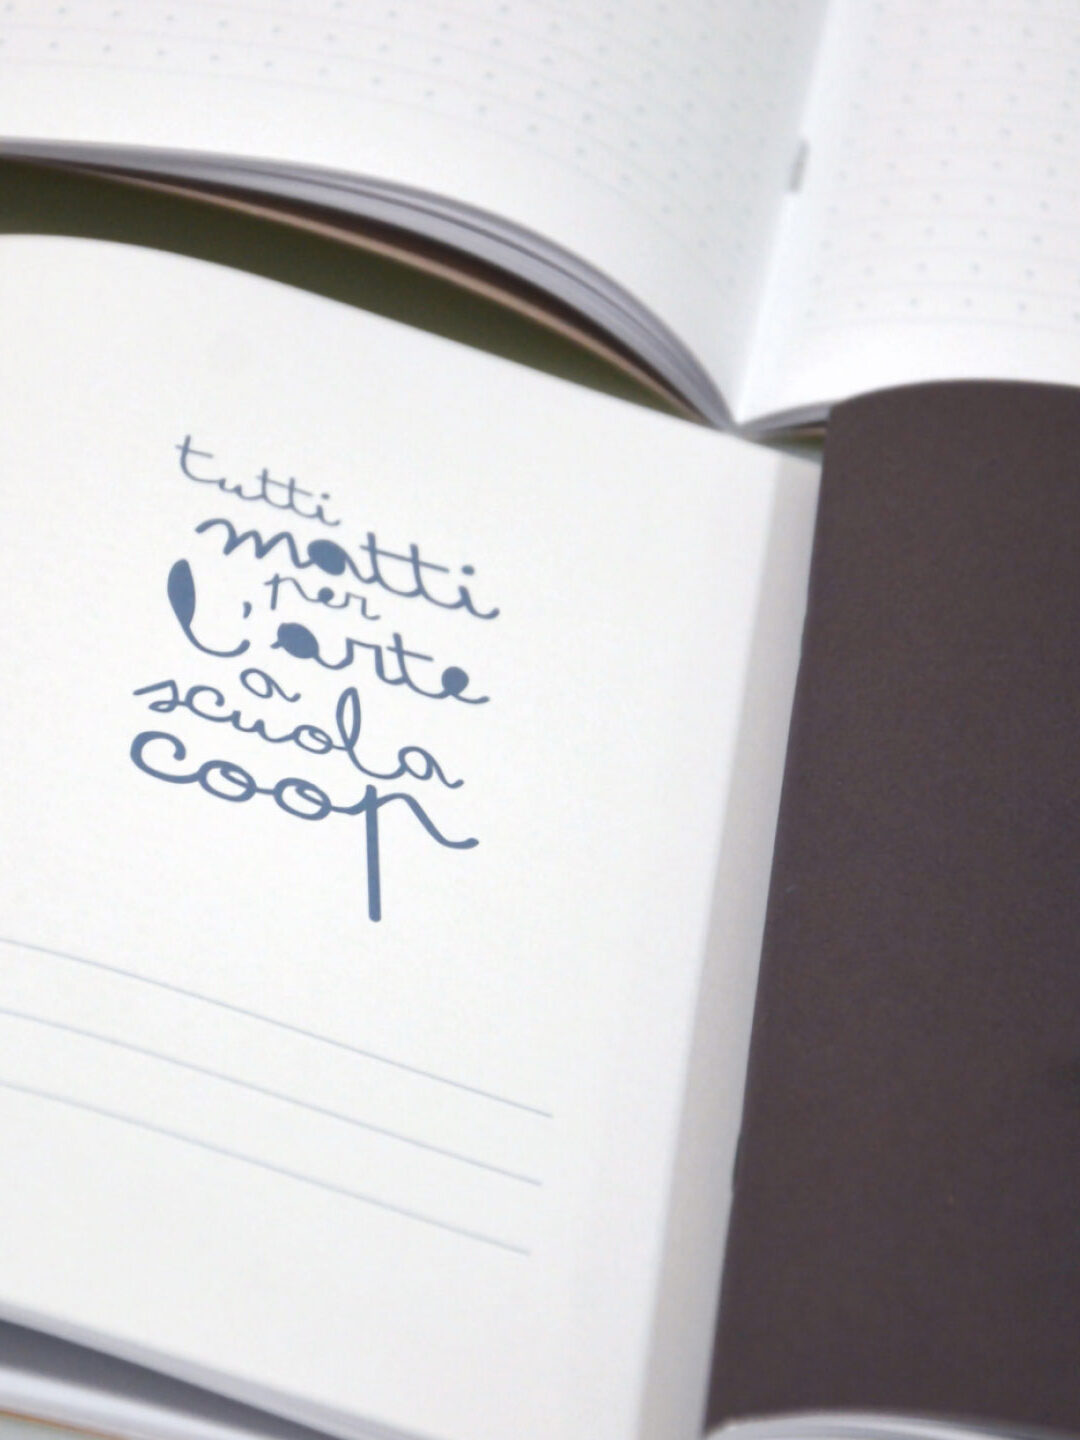 tutti
matti
per
l'arte
a
scuola
coop